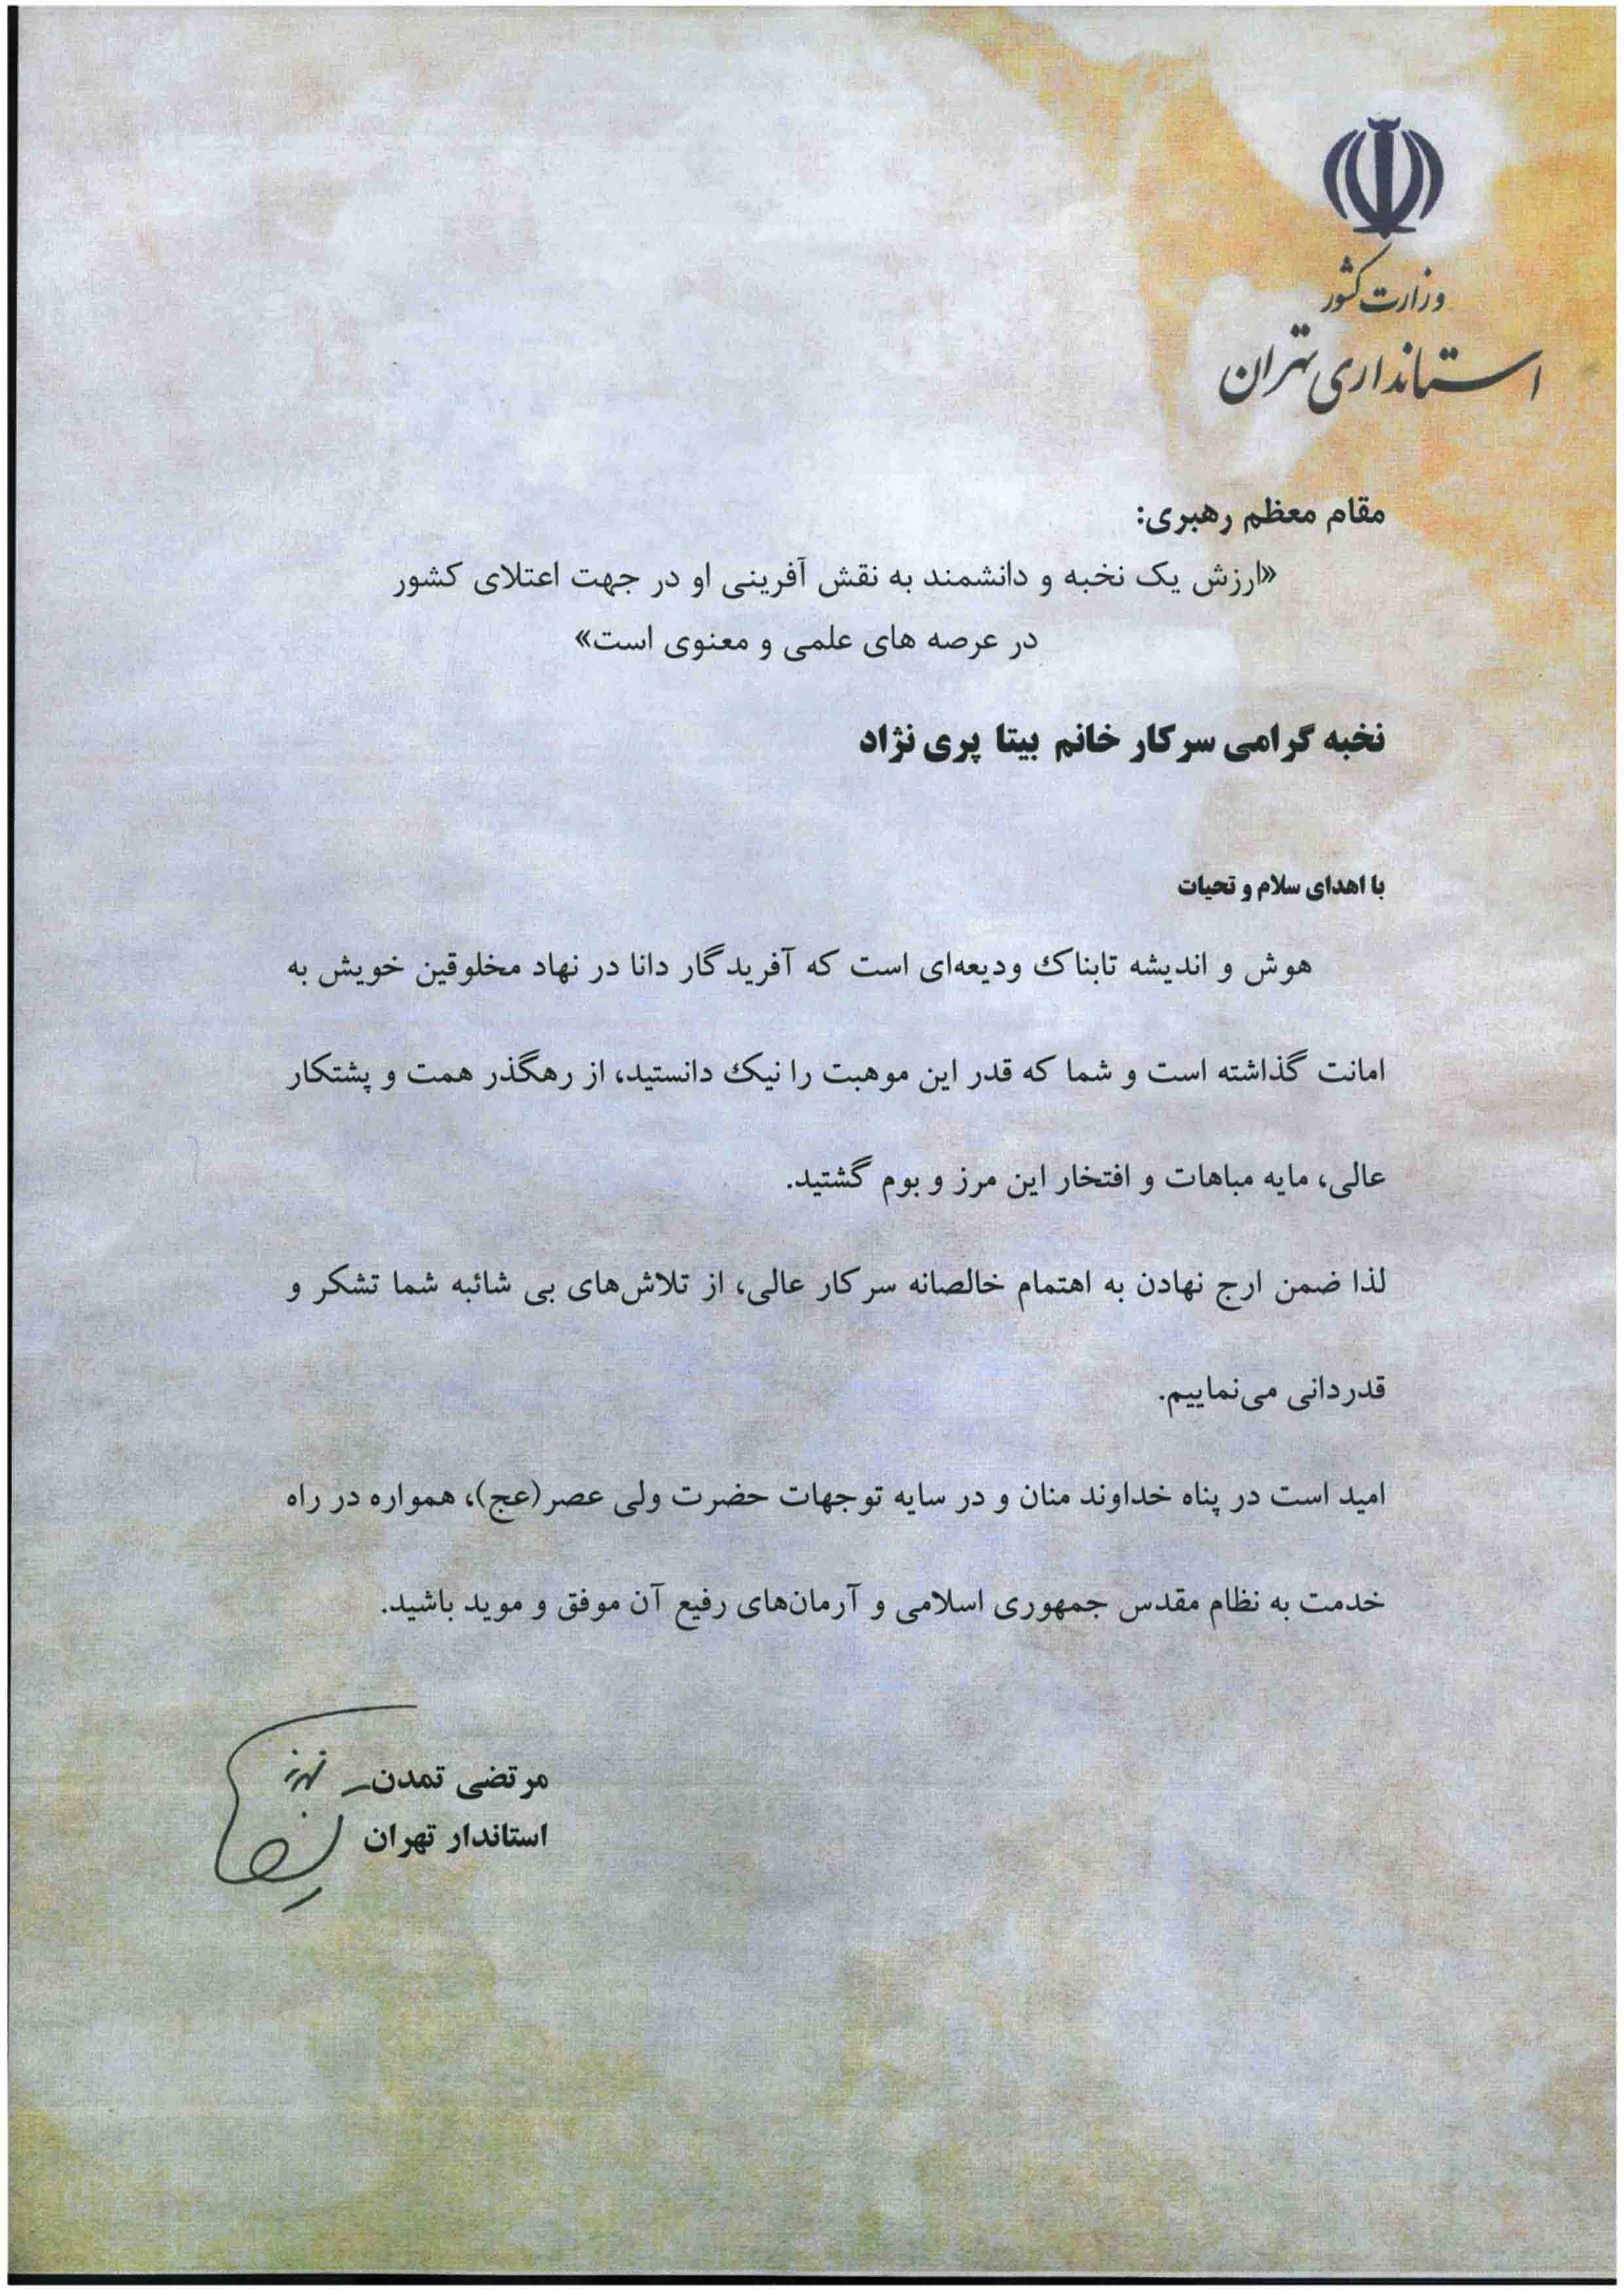 وزارت کشور
استانداری تهران
مقام معظم رهبری:
«ارزش یک نخبه و دانشمند به نقش آفرینی او در جهت اعتلای کشور
در عرصه های علمی و معنوی است»
نخبه گرامی سرکار خانم بیتا پری نژاد
با اهدای سلام و تحیات
هوش و اندیشه تابناک ودیعه‌ای است که آفریدگار دانا در نهاد مخلوقین خویش به
امانت گذاشته است و شما که قدر این موهبت را نیک دانستید، از رهگذر همت و پشتکار
عالی، مایه مباهات و افتخار این مرز و بوم گشتید.
لذا ضمن ارج نهادن به اهتمام خالصانه سرکار عالی، از تلاش‌های بی شائبه شما تشکر و
قدردانی می‌نماییم.
امید است در پناه خداوند منان و در سایه توجهات حضرت ولی عصر(عج)، همواره در راه
خدمت به نظام مقدس جمهوری اسلامی و آرمان‌های رفیع آن موفق و موید باشید.
مرتضی تمدن
استاندار تهران